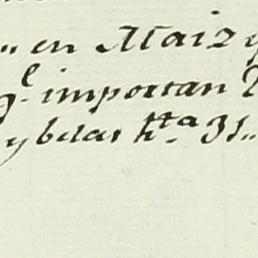 " en Maiz y
q.l importan
y belas h.ta 31"